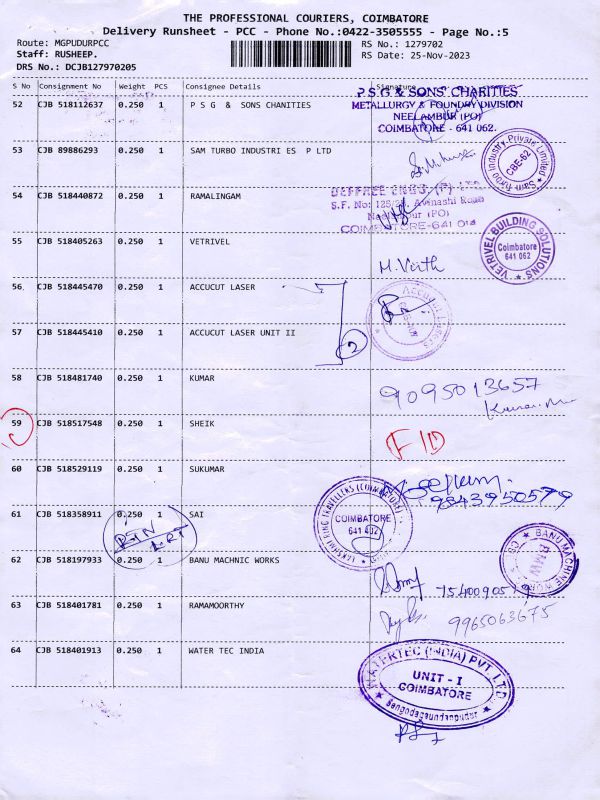 THE PROFESSIONAL COURIERS, COIMBATORE
Delivery Runsheet - PCC - Phone No.:0422-3505555 - Page No.:5
Route: MGPUDURPCC
RS No.: 1279702
Staff: RUSHEEP.
RS Date: 25-Nov-2023
DRS No.: DCJB127970205
S No Consignment No Weight PCS Consignee Details Signature
52 CJB 518112637 0.250 1 P S G & SONS CHANITIES
P.S.G & SONS' CHARITIES
METALLURGY & FOUNDRY DIVISION
NEELAMBUR (PO)
COIMBATORE - 641 062.
53 CJB 89886293 0.250 1 SAM TURBO INDUSTRI ES P LTD
Sam Turbo Industry Private Limited
CBE-62
54 CJB 518440872 0.250 1 RAMALINGAM
S.F. No: Avinashi Road
(PO)
COIMBATORE-641 014
55 CJB 518405263 0.250 1 VETRIVEL
VETRIVEL BUILDING SOLUTIONS
Coimbatore
641 062
56 CJB 518445470 0.250 1 ACCUCUT LASER
57 CJB 518445410 0.250 1 ACCUCUT LASER UNIT II
2
58 CJB 518481740 0.250 1 KUMAR
9095013657
59 CJB 518517548 0.250 1 SHEIK
60 CJB 518529119 0.250 1 SUKUMAR
9843950579
61 CJB 518358911 0.250 1 SAI
COIMBATORE
641 402
62 CJB 518197933 0.250 1 BANU MACHNIC WORKS
BANU MACHINE WORKS
63 CJB 518401781 0.250 1 RAMAMOORTHY
9965063675
64 CJB 518401913 0.250 1 WATER TEC INDIA
WATERTEC (INDIA) PVT. LTD.
UNIT - I
COIMBATORE